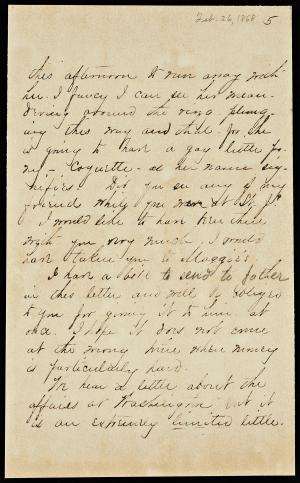 Feb. 26, 1868 5
this afternoon to run away with
her. I fancy I can see her mean-
dering around the ring, plung-
ing this way and that for she
is going to have a gay little po-
ny - Coquette - as her name sig-
nifies. Did you see any of my
friends while you were at St. J.
I would like to have been there
with you very much. I would
have taken you to Maggie's.
I have a bill to send to father
in this letter and will be obliged
to you for giving it to him at
once. I hope it does not come
at the wrong time when money
is particularly hard.
We hear a little about the
affairs at Washington but it
is an extremely limited little.